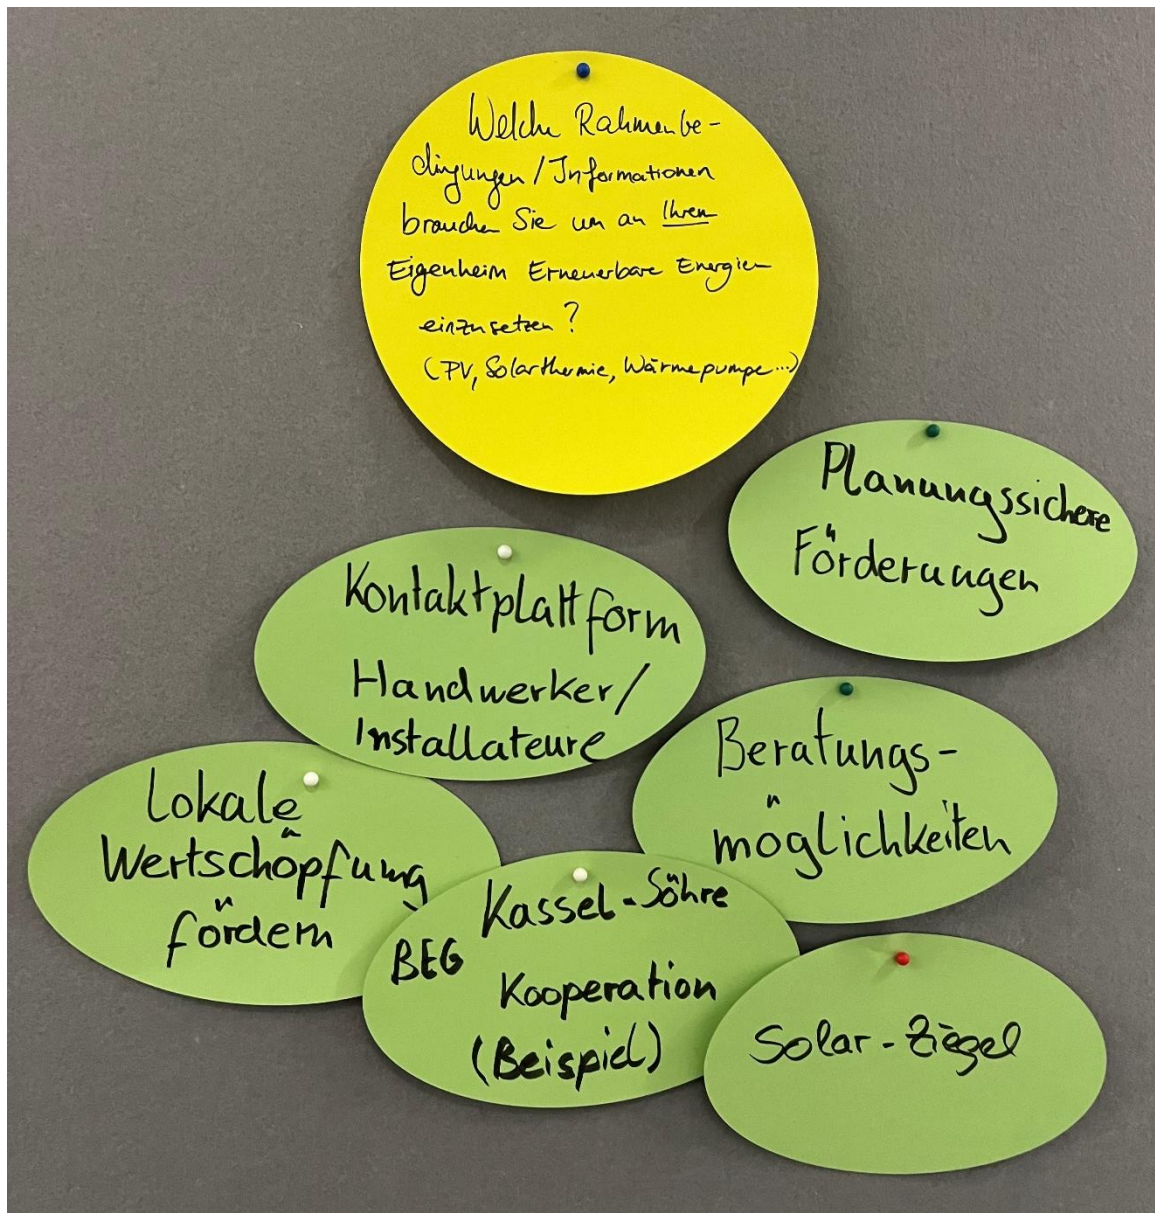 Welche Rahmenbe-
dingungen / Informationen
brauchen Sie um an Ihrem
Eigenheim Erneuerbare Energien
einzusetzen?
(PV, Solarthermie, Wärmepumpe...)
Planungssichere
Förderungen
Kontaktplattform
Handwerker/
Installateure
Beratungs-
möglichkeiten
Lokale
Wertschöpfung
fördern
Kassel-Söhre
BEG
Kooperation
(Beispiel)
Solar-Ziegel